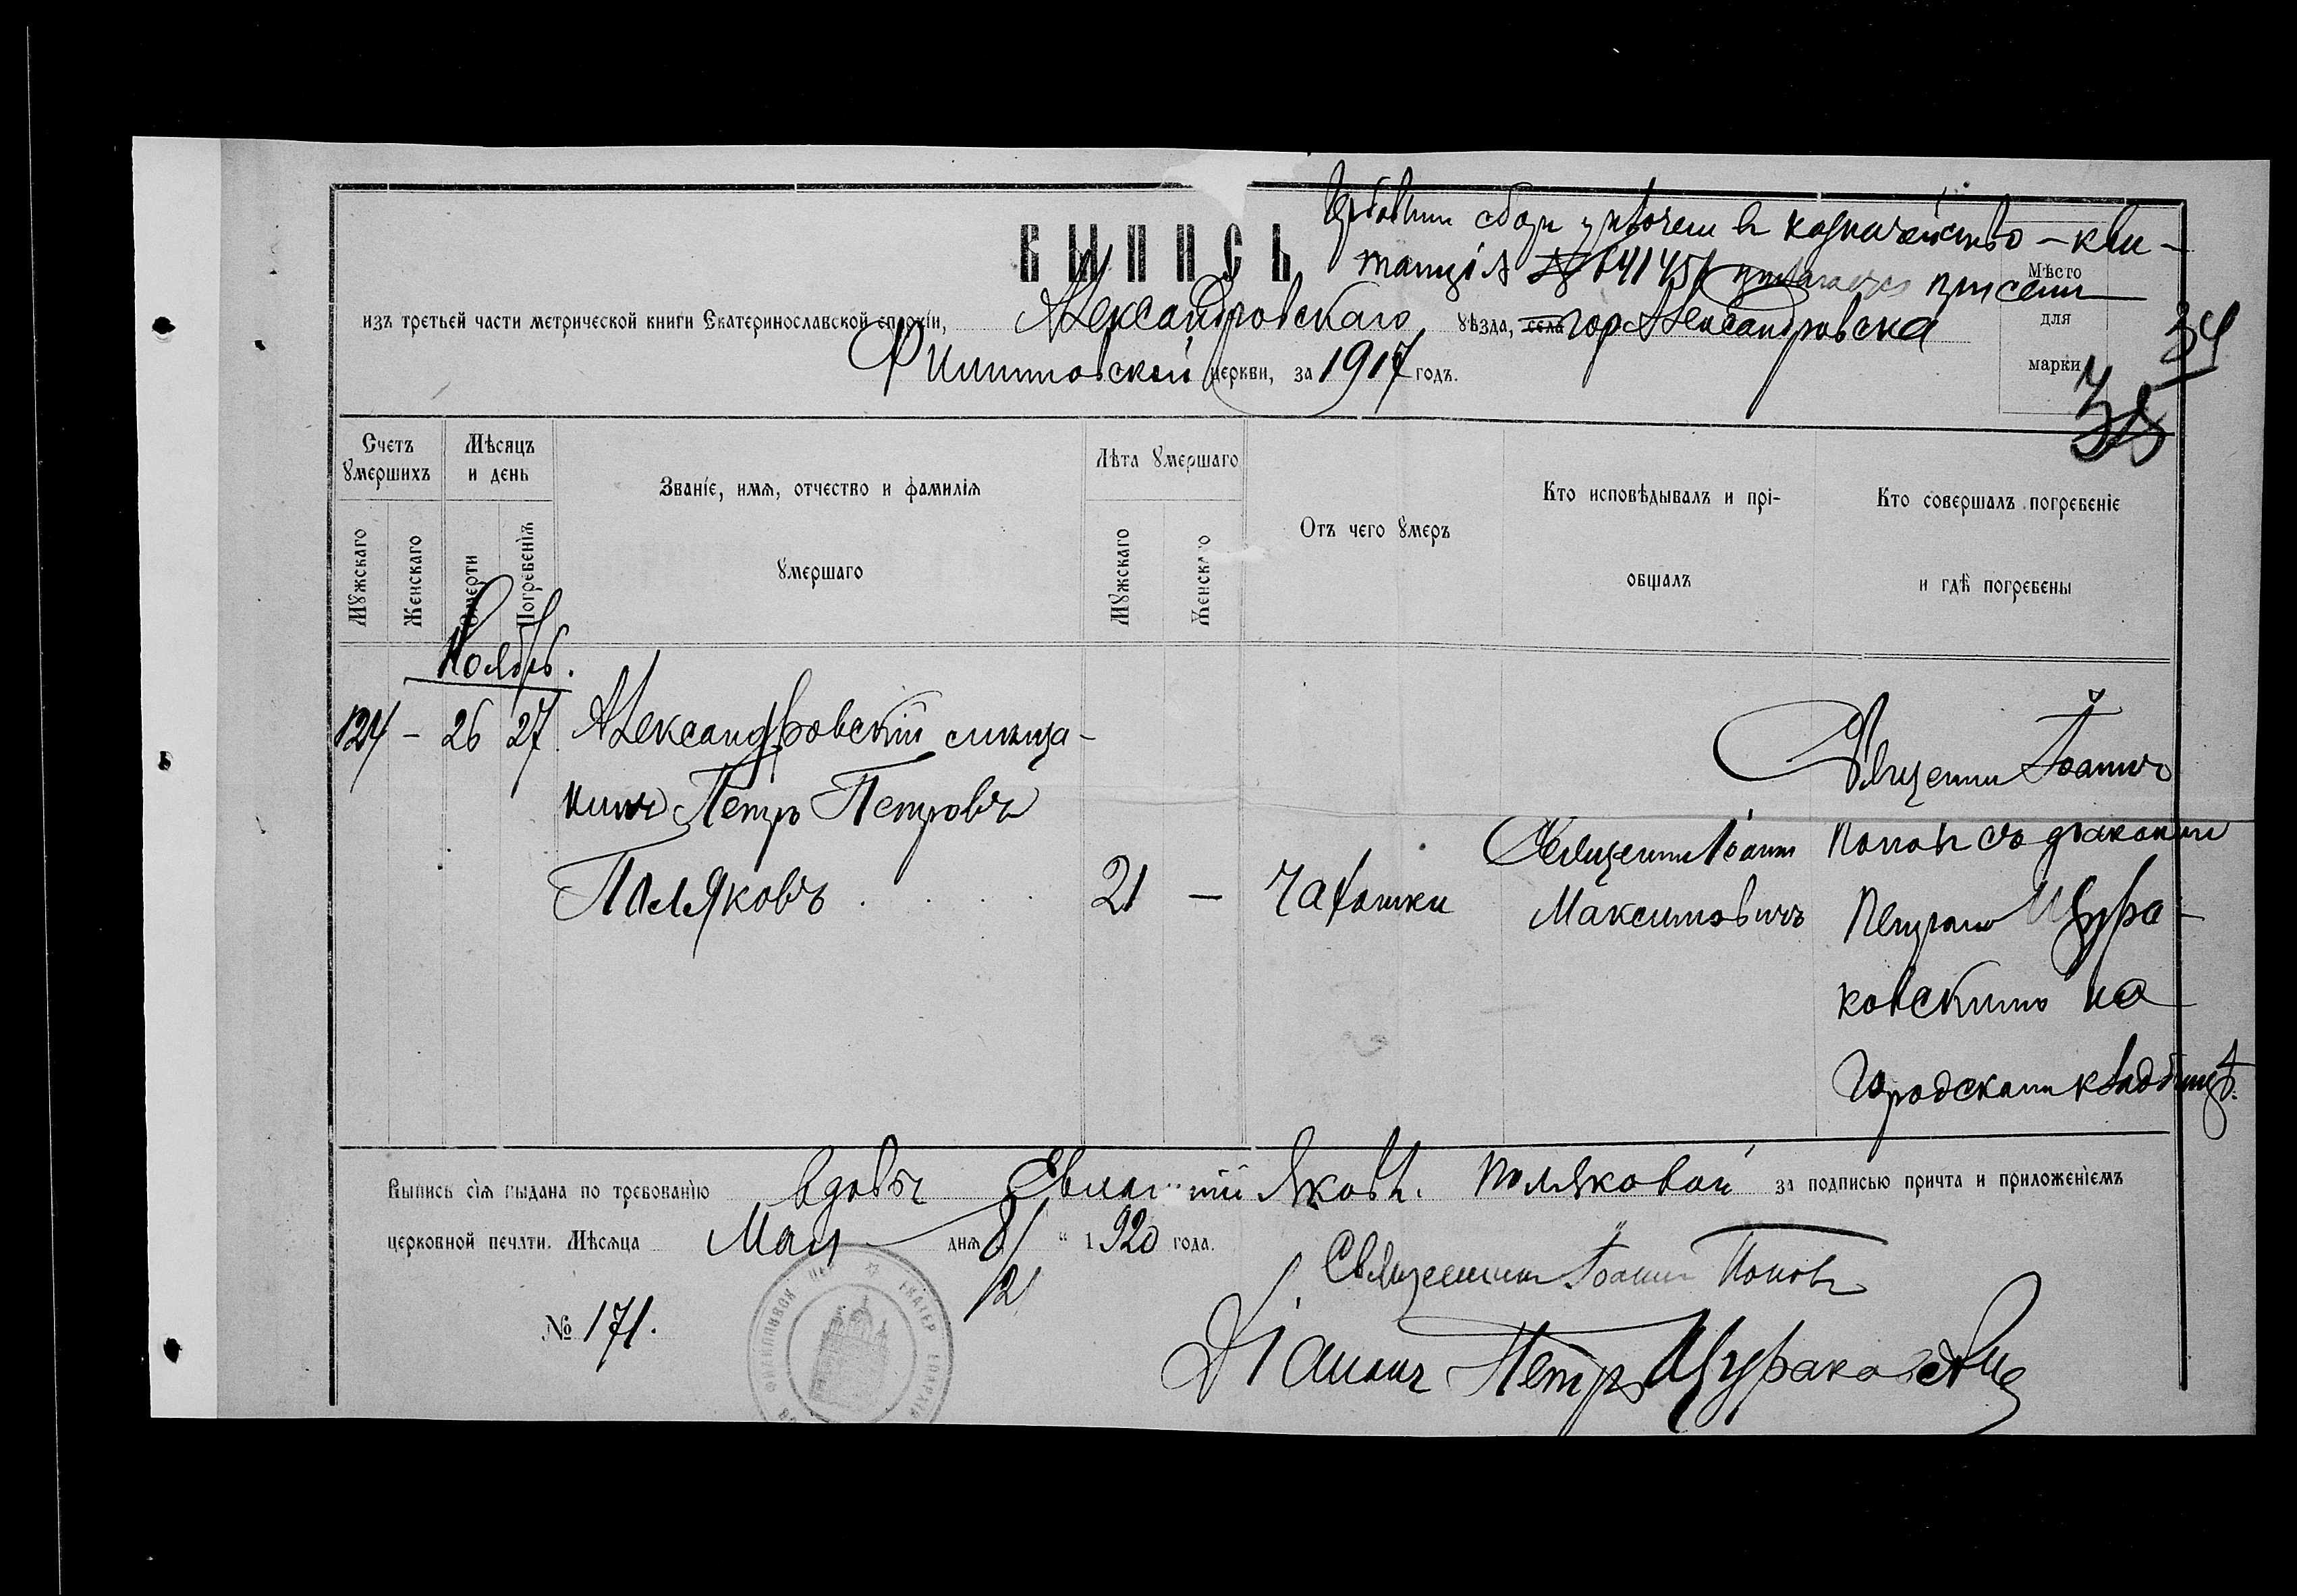 Гербовый сборъ уплоченъ въ казначейство – кви-
ВЫПИСЬ
танція № 641451 при семъ
Мѣсто
для
марки
изъ третьей части метрической книги Екатеринославской епархіи, Александровскаго уѣзда, села гор Александровска
34
Филипповской церкви, за 1917 годъ.
35
Счетъ умершихъ
Мѣсяцъ и день
Званіе, имя, отчество и фамилія
умершаго
Лѣта умершаго
Отъ чего умеръ
Кто исповѣдывалъ и прі-
общалъ
Кто совершалъ погребеніе
и гдѣ погребены
Мужскаго
Женскаго
Смерти
Погребенія
Мужскаго
Женскаго
Ноябрь.
124 – 26 27
Александровскій мѣща-
нинъ Петръ Петровъ
Поляковъ
21 –
Чахотки
Священникъ Іоаннъ
Максимовичъ
Священникъ Іоаннъ
Поповъ съ діакономъ
Петромъ Цура-
ковскимъ на
городскомъ кладбищѣ.
Выпись сія выдана по требованію вдовы Яковл. Поляковой за подписью причта и приложеніемъ
церковной печати. Мѣсяца Мая дня 8/21 " 1920 года.
Священникъ Іоаннъ Поповъ
№ 171.
Діаконъ Петръ Цураковскій